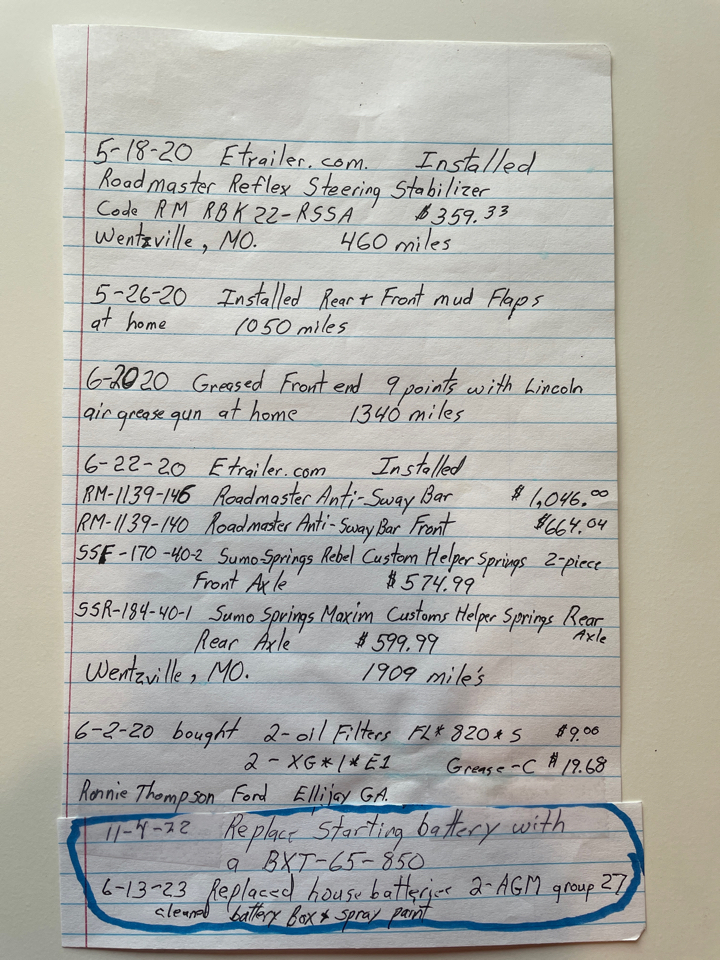 5-18-20 Etrailer.com. Installed
Roadmaster Reflex Steering Stabilizer
Code RM RBK22-RSSA $359.33
Wentzville, MO. 460 miles
5-26-20 Installed Rear + Front mud Flaps
at home 1050 miles
6-2020 Greased Front end 9 points with Lincoln
air grease gun at home 1340 miles
6-22-20 Etrailer.com Installed
RM-1139-146 Roadmaster Anti-Sway Bar $1,046.00
RM-1139-140 Roadmaster Anti-Sway Bar Front $664.04
SSF-170-40-2 Sumo Springs Rebel Custom Helper Springs 2-piece
Front Axle $574.99
SSR-184-40-1 Sumo Springs Maxim Customs Helper Springs Rear
Axle
Rear Axle $599.99
Wentzville, MO. 1909 mile's
6-2-20 bought 2-oil Filters FL*820*S $9.00
2-XG*1*E1 Grease-C $19.68
Ronnie Thompson Ford Ellijay GA.
11-4-22 Replace Starting battery with
a BXT-65-850
6-13-23 Replaced house batteries 2-AGM group 27
cleaned battery Box & spray paint